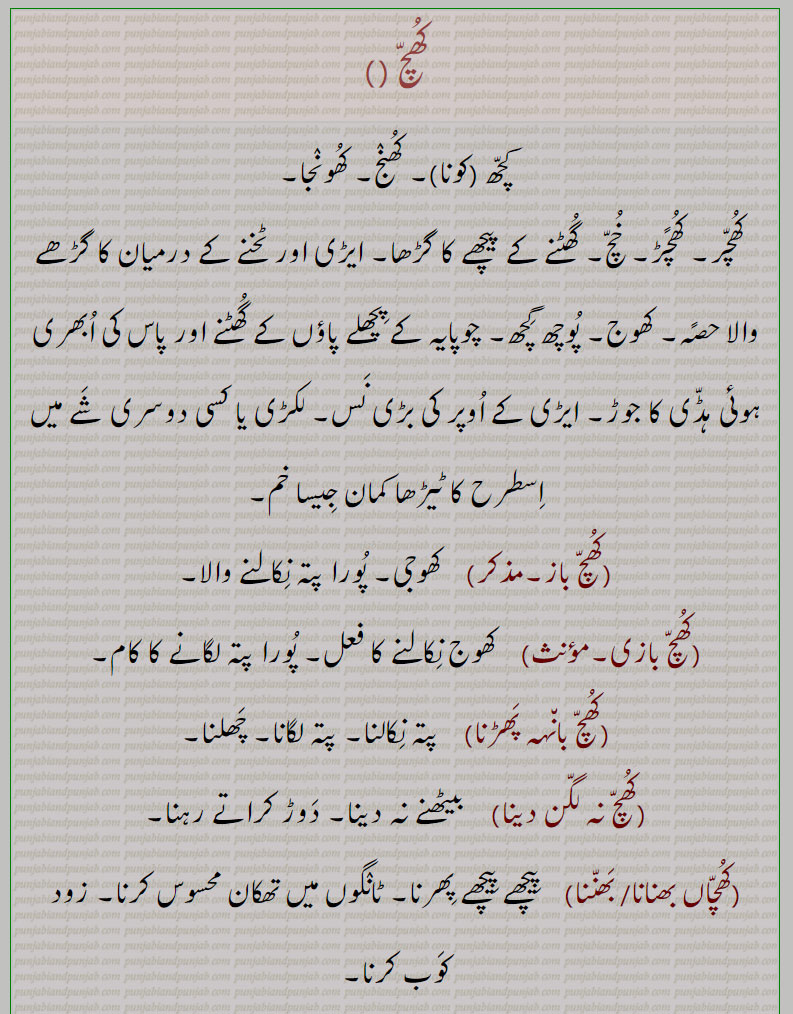 کُھچّ ()
کچّھ (کونا)۔ کُھنْج۔ کُھونْجا۔
کُھچّر۔ کُھچَّڑ۔ خُچّ۔ گُھٹنے کے پیچھے کا گڑھا۔ ایڑی اور ٹخنے کے درمیان کا گڑھے
والا حصّہ۔ کھوج۔ پُوچھ گِچھ۔ چوپایہ کے پِچھلے پاؤں کے گُھٹنے اور پاس کی اُبھری
ہوئی ہڈّی کا جوڑ۔ ایڑی کے اُوپر کی بڑی نَس۔ لکڑی یا کسی دوسری شَے میں
اِسطرح کا ٹیڑھا کمان جِیسا خم۔
(کُھچّ باز۔مذکر) کھوجی۔ پُورا پتہ نِکالنے والا۔
(کُھچّ بازی۔مؤنث) کھوج نِکالنے کا فعل۔ پُورا پتہ لگانے کا کام۔
(کُھچّ بانْہہ پَھڑنا) پتہ نِکالنا۔ پتہ لگانا۔ چَھلنا۔
(کُھچّ نہ لگّن دینا) بیٹھنے نہ دینا۔ دَوڑ کراتے رہنا۔
(کُھچّاں بھنانا/ بَھنّنا) پِیچھے پِیچھے پِھرنا۔ ٹانْگوں میں تھکان محسوس کرنا۔ زود
کوَب کرنا۔